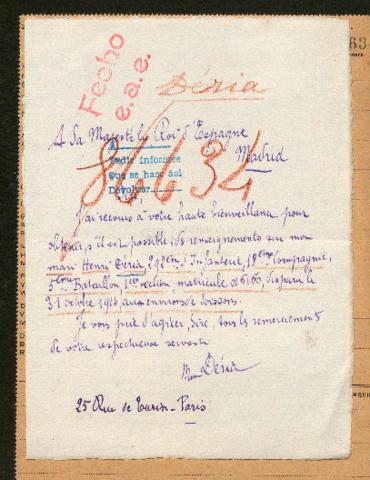 Fecho
e.a.e.
Déria
A Sa Majesté le Roi d'Espagne
Madrid
A
Pedir informes
Que se hace así
Devolver
J'ai recours à votre haute bienveillance pour
obtenir, s'il est possible, des renseignements sur mon
mari Henri Déria, 282ème d'Infanterie, 18ème Compagnie,
5ème Bataillon, 1ère section, matricule, disparu le
31 octobre 1914, aux environs de Soissons.
Je vous prie d'agréer, Sire, tous les remerciements
de votre respectueuse servante
Mme Déria
25 Rue de Turin - Paris
63